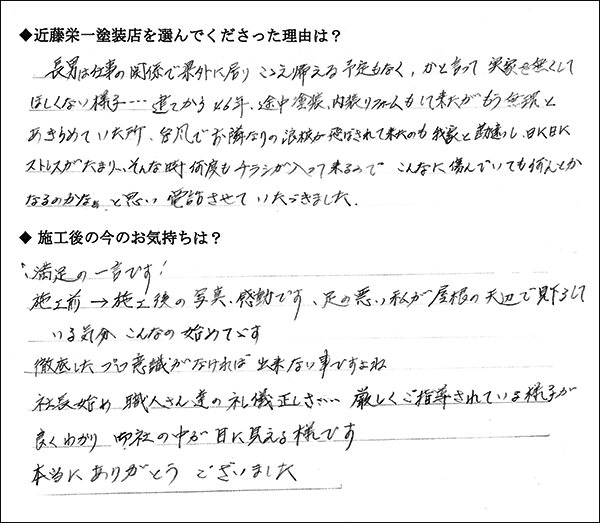 ◆近藤栄一塗装店を選んでくださった理由は？
長男は仕事の関係で県外に居り ここえ帰える予定もなく、かと言って 実家を無くして
ほしくない様子… 建てから46年、途中塗装、内装リフォームもして来たがもう無理と
あきらめていた所、台風でお隣なりの波板が飛ばされて来たのも我家と勘違いし、日々
ストレスがたまり、そんな時何度もチラシが入って来るので こんなに傷んでいても何んとか
なるのかなぁ と思い 電話させていただきました.
◆ 施工後の今のお気持ちは？
満足の一言です！
施工前→施工後の写真、感動です、足の悪い私が屋根の天辺で見下して
いる気分 こんなの始めてです
徹底したプロ意識がなければ 出来ない事ですよね
社長始め 職人さん達の礼儀正しさ… 厳しくご指導されている様子が
良くわかり 御社の中が目に見える様です
本当にありがとう ございました